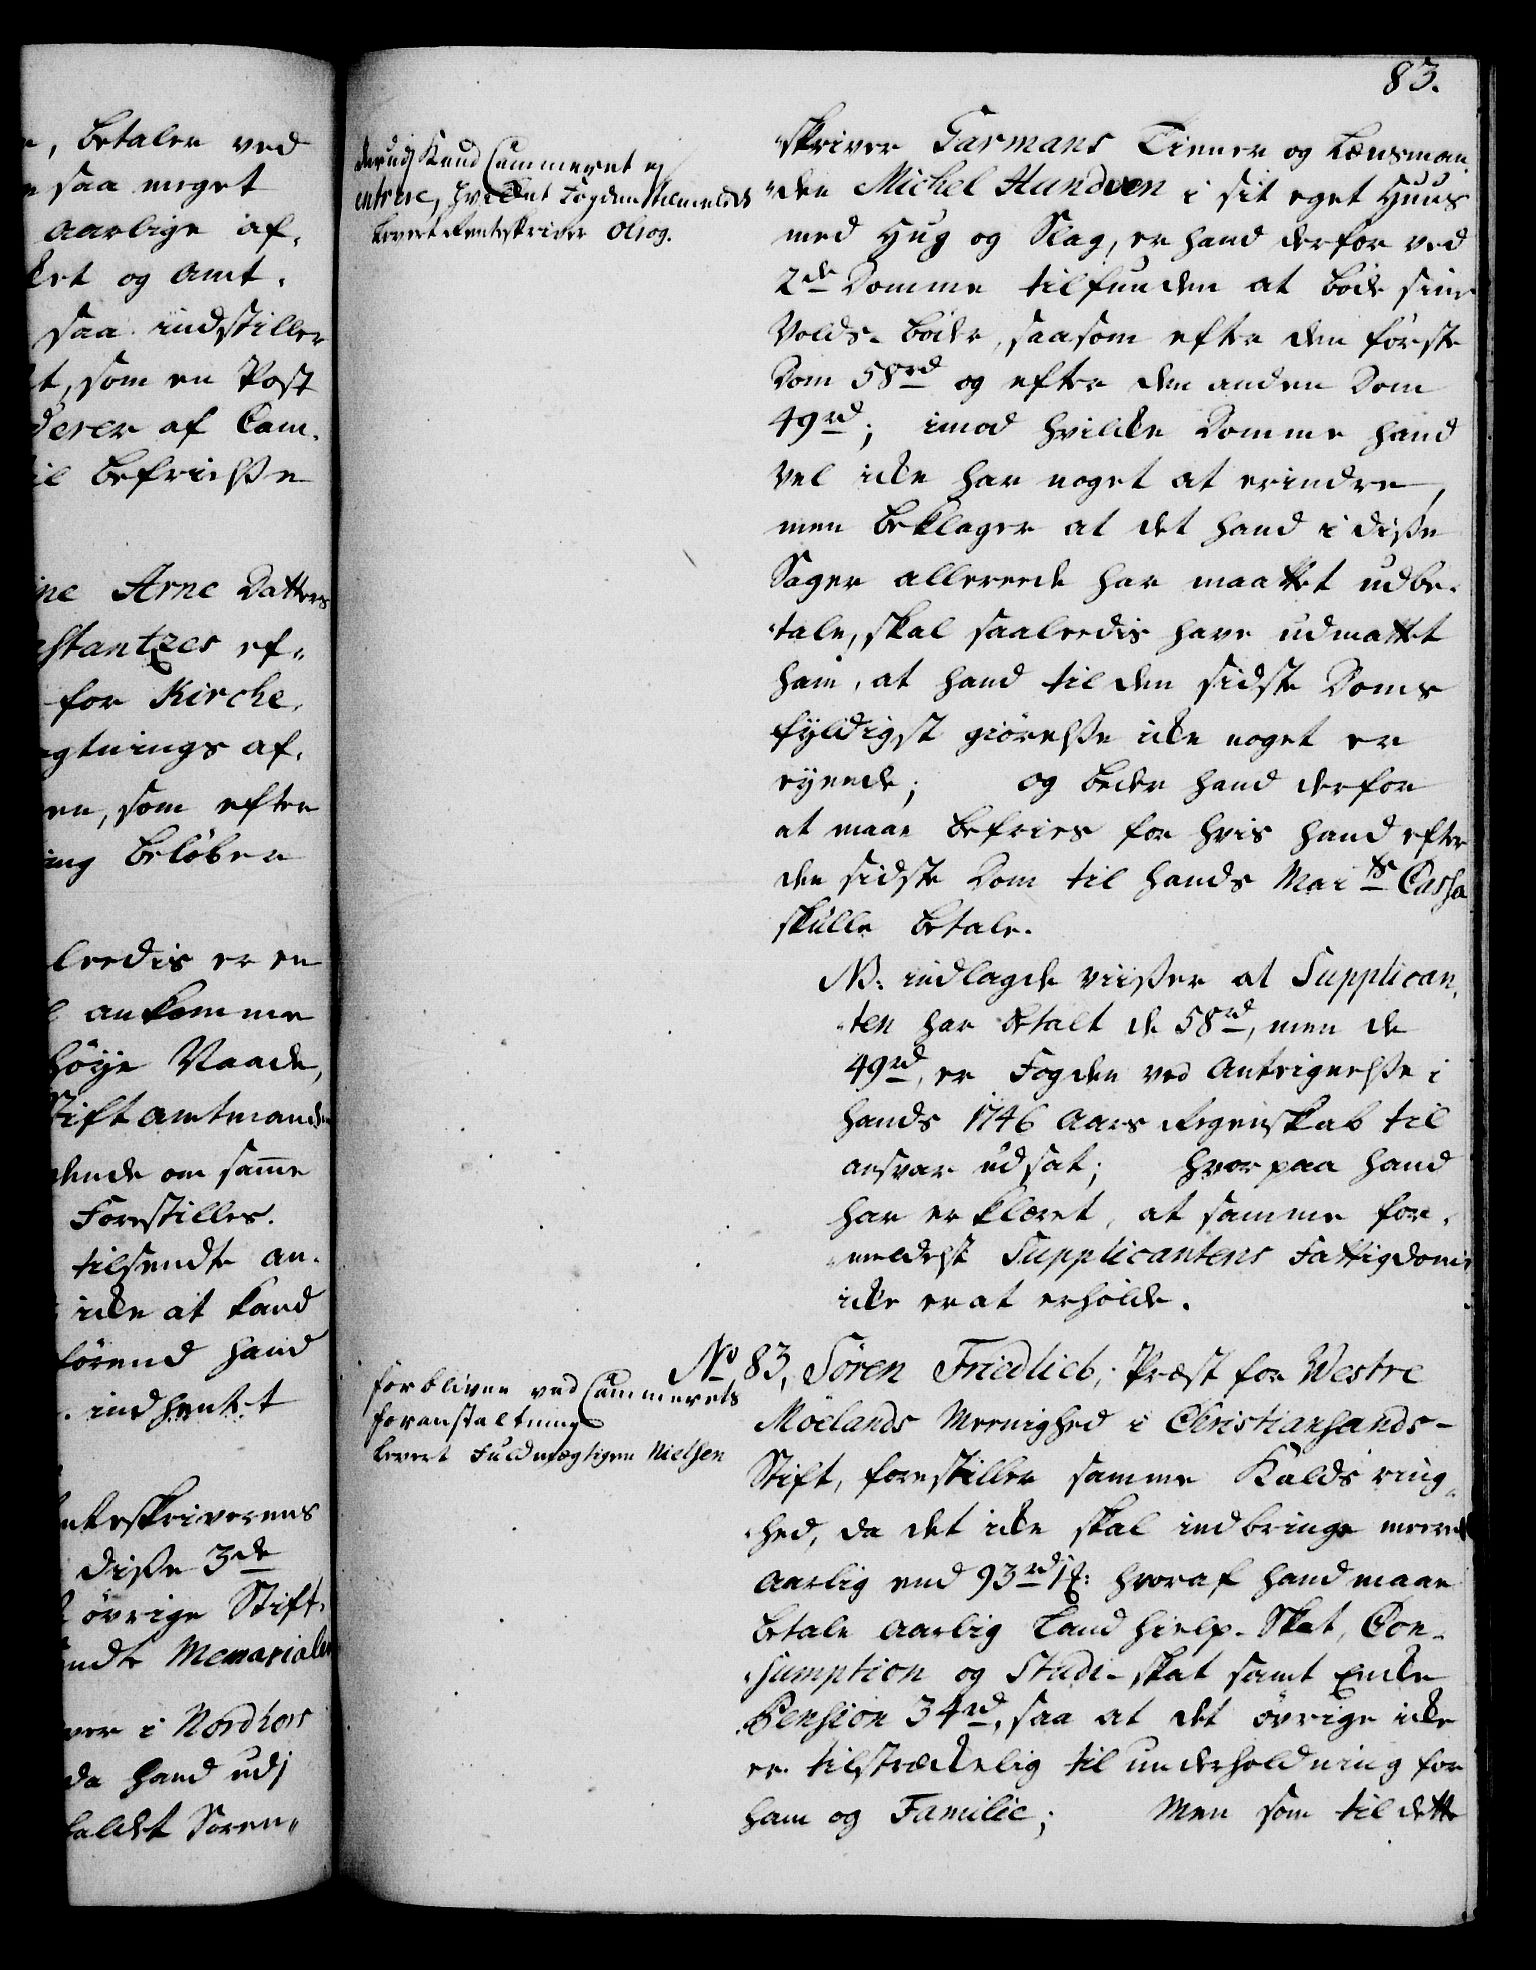 83.
, betaler ved
saa meget
aarlige af-
ket og Amt.
saa indstiller
t, som en Post
derer af Cam-
il befrielsse
ine Arne Datters
stantzes ef-
for Kirche-
gtnings af-
en, som efter
ing beløber
leedis er en
ankomme
høye Naade,
Stiftamtmanden
dende om samme
Forestilles.
tilsendte an-
icke at kand
førend hand
. indhentet
nteskriverens
disse 3de
øvrige Stift-
sendte Memorialer
ver i Nordhors
da hand udj
faldet Soren-
derudj Kand Cammeret ej
entrere, hvilket Fogden tilmeldes
levert Renteskriver Olrog.
skriver Garmans Tiener og Lænsman-
den Michel Hundven i sit eget Huus
med Hug og Slag, er hand derfor ved
2de Domme tilfunden at bøde sine
Volds-bøder, saasom efter den første
Dom 58rd og efter den anden Dom
49rd; imod hvilcke Domme hand
vel icke har noget at erindre,
men beklager at det hand i disse
Sager allereede har maattet udbe-
tale, skal saaleedis have udmattet
ham, at hand til den sidste Doms
fyldigst giørelsse icke noget er
eyende; og beder hand derfor
at maae befries for hvis hand efter
den sidste Dom til hands Maits Cassa
skulle betale.
NB: indlagde viisser at Supplican-
ten har betalt de 58rd, men de
49rd, er Fogden ved Antegnelsse i
hands 1746 Aars Regenskab til
ansvar udsat; hvorpaa hand
har erklæret, at samme for-
meedelst Supplicantens Fattigdom
icke er at erholde.
No 83, Sören Friedlieb, Præst for Westre
forbliver ved Cammerets
foranstaltning
levert Fuldmægtigen Nielsen
Moelands Meenighed i Christiansands-
Stift, forestiller samme Kalds ring-
hed, da det icke skal indbringe meere
Aarlig end 93rd 1ß: hvoraf hand maae
betale aarlig Land hielp-Skat, Con-
sumption og Studi-skat samt Encke
Pension 34rd, saa at det øvrige icke
er tilstræckelig til underholdning for
ham og Familie; Men som til dette